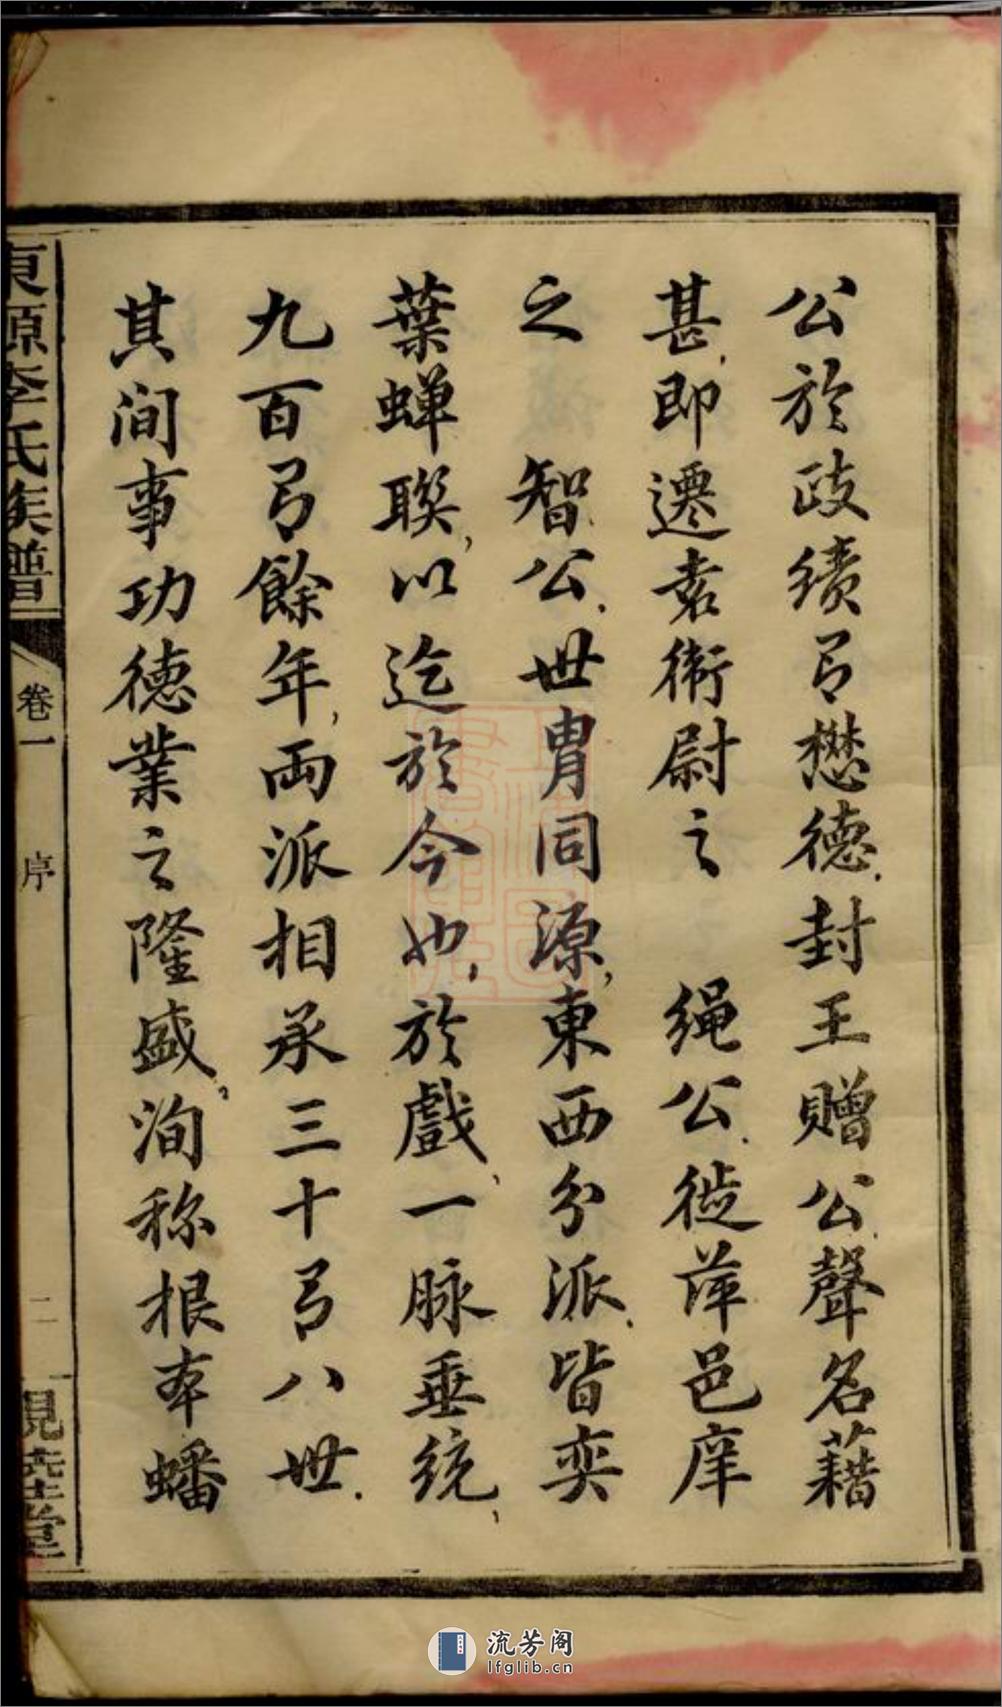 公於政績有懋德、封王贈公、聲名藉
甚、即遷袁衛尉之 繩公、徙萍邑庠
之 智公、世胄同源、東西分派、皆奕
葉蟬聯、以迄於今也、於戲、一脉垂統、
九百有餘年、両派相承三十有八世、
其间事功德業之隆盛、洵称根本蟠
東源李氏族譜
卷一
序
二
堂
流芳阁
lfglib.cn